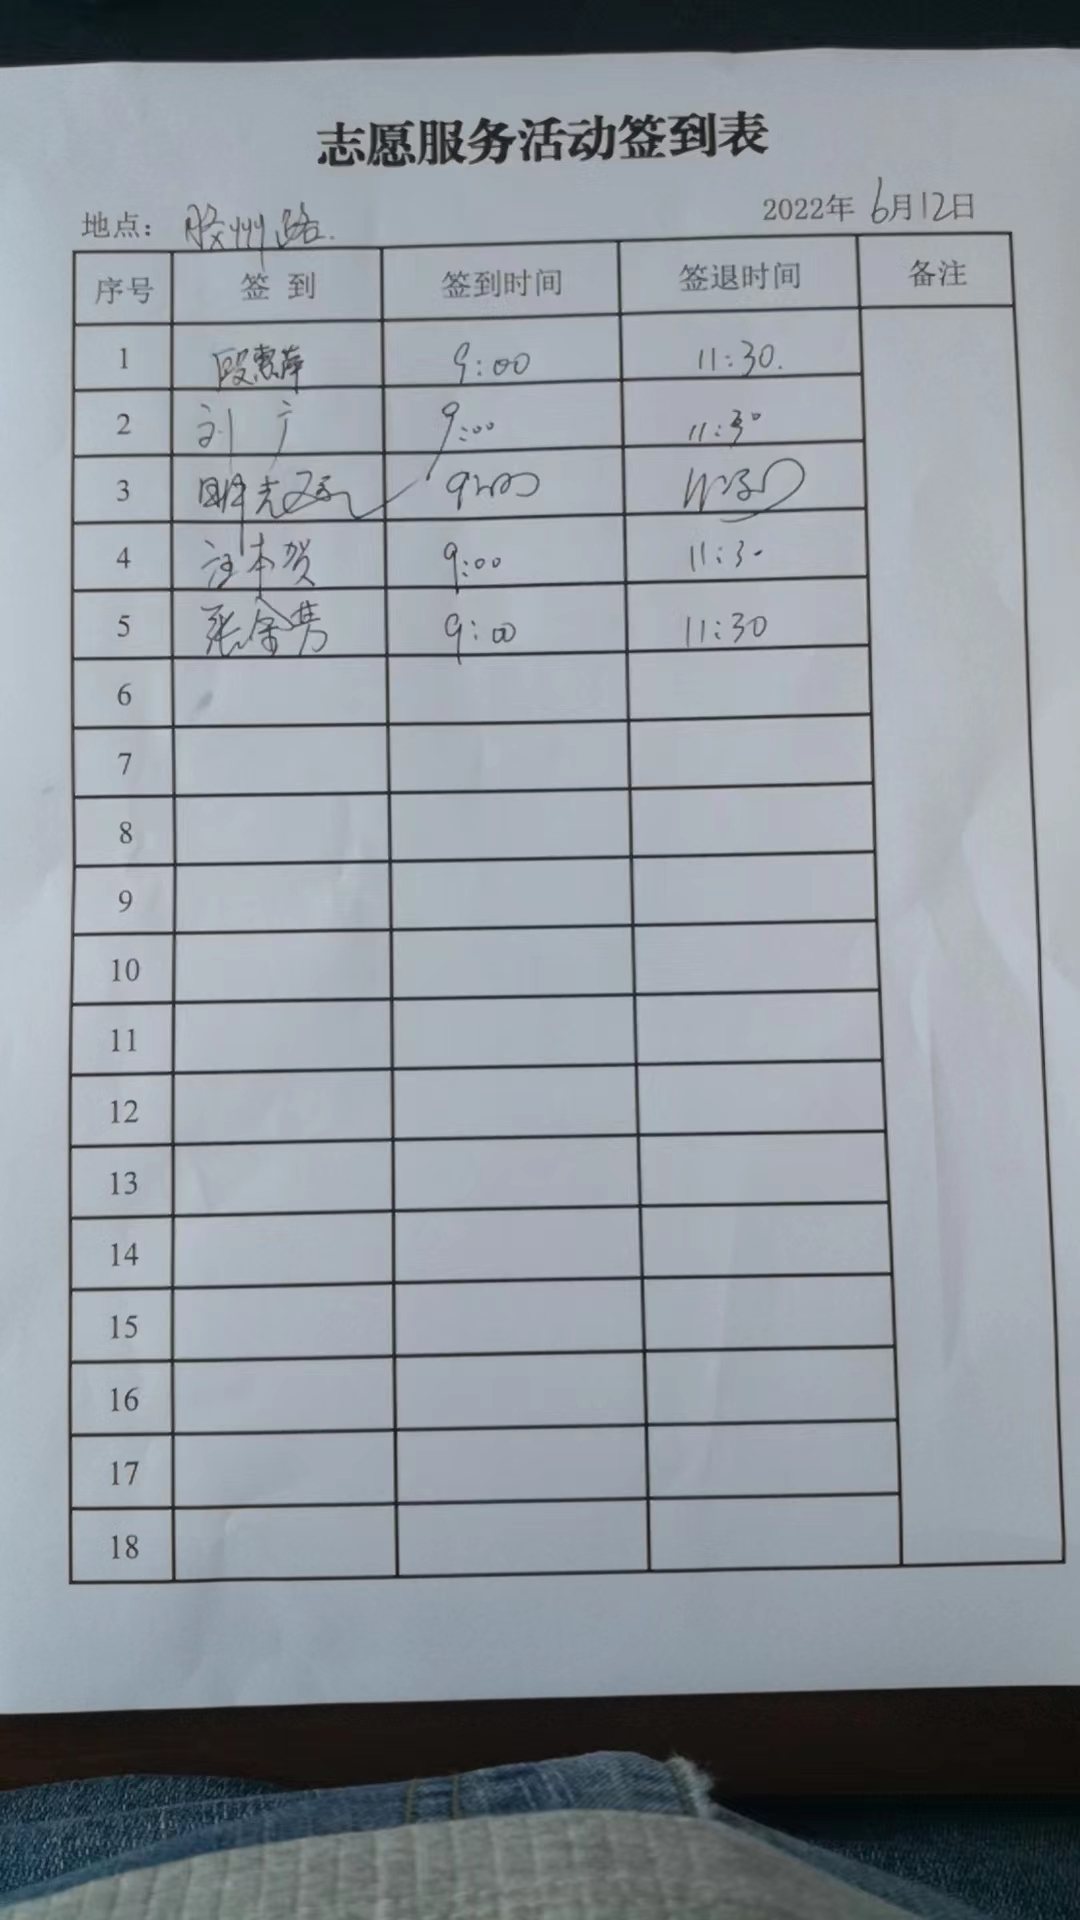 志愿服务活动签到表
地点： 胶州路.
2022年 6月12日
序号 签 到 签到时间 签退时间 备注
1 段惠萍 9:00 11:30.
2 刘 广 9:00 11:30
3 9:00
4 汪本贺 9:00 11:30
5 张 9:00 11:30
6
7
8
9
10
11
12
13
14
15
16
17
18